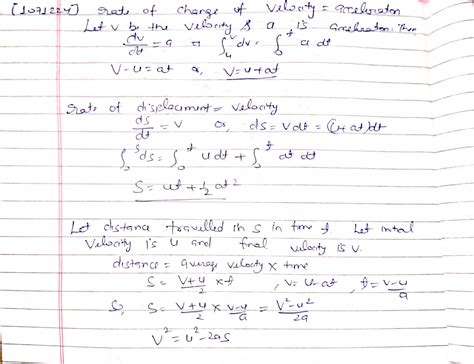 [1071224] rate of change of velocity = acceleration
Let v be the velocity & a is acceleration. Then
dv/dt = a ⇒ ∫_u^v dv = ∫_0^t a dt
V-u = at or, V = u+at
rate of displacement = velocity
ds/dt = V or, ds = V dt = (u+at)dt
∫_0^s ds = ∫_0^t u dt + ∫_0^t at dt
S = ut + 1/2 at²
Let distance travelled is S in time t Let intial
Velocity is u and final velocity is V.
distance = average velocity × time
S = (V+u)/2 × t , V = u-at , t = (v-u)/a
So, S = (V+u)/2 × (V-u)/a = (V²-u²)/2a
V² = u²-2as